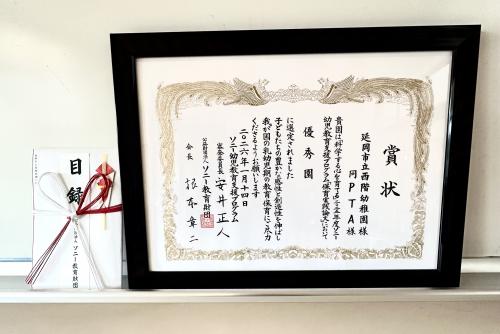 賞状
延岡市立西階幼稚園様
同PTA様
貴園は科学する心を育てる
幼児教育支援プログラム保育実践論文において
優秀園
に選定されました
子どもたちの豊かな感性と創造性を伸ばし
我が国の乳幼児期の教育保育にご尽力
くださるようお願いします
二〇二六年一月十四日
ソニー幼児教育支援プログラム
審査委員長 安井正人
公益財団法人 ソニー教育財団
会長 根本章二
目録
ソニー教育財団